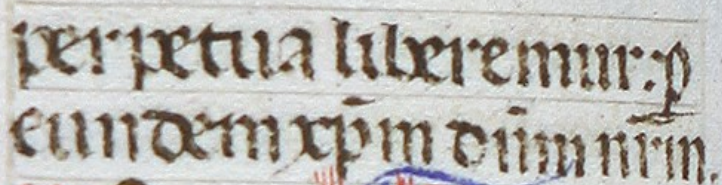 perpetua liberemur: ꝑ
eundem xp̄m dn̄m nr̄m.